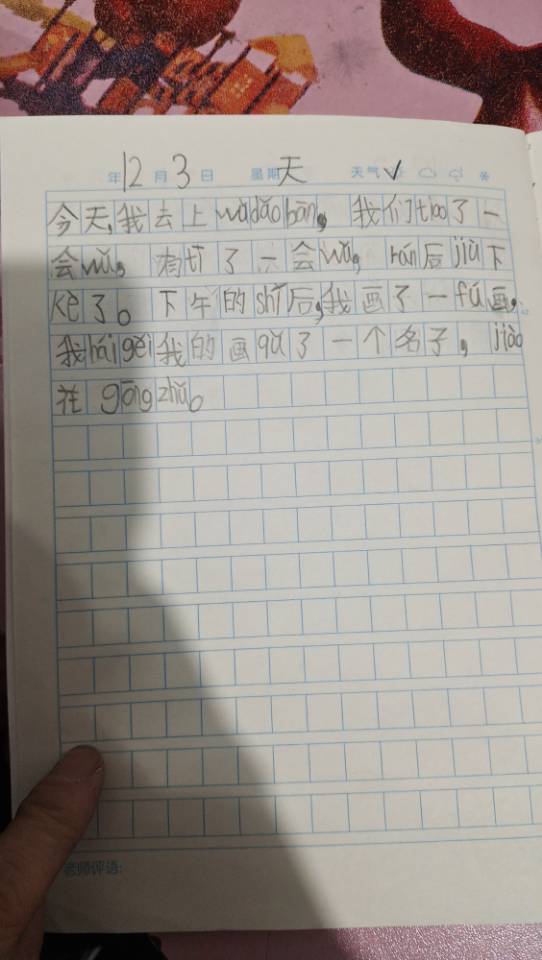 年12月3日 星期天 天气✓
今天,我去上wǔdǎobān,我们tiào了一
会wǔ,有tī了一会wǔ,rán后jiù下
Kè了。下午的shí后,我画了一fú画,
我hái gěi我的画qǔ了一个名子,jiào
在gōngzhǔ。
老师评语: